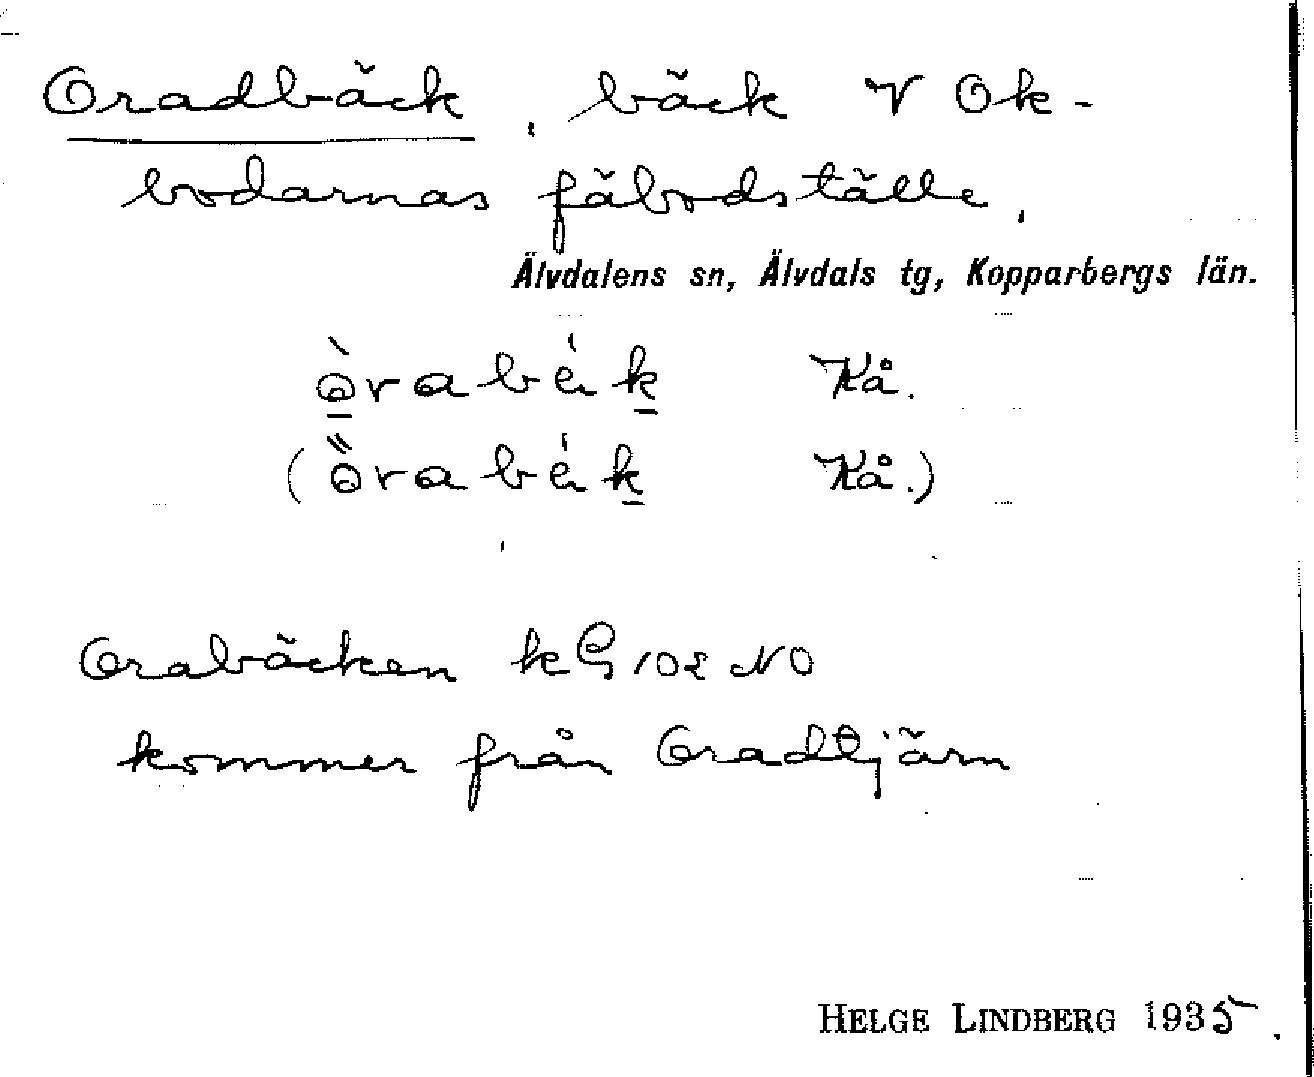 Oradbäck, bäck V Ok-
bodarnas fäbodställe,
Älvdalens sn, Älvdals tg, Kopparbergs län.
Kå.
( Kå.)
Orabäcken kG 102 NO
kommer från Oradtjärn
HELGE LINDBERG 1935.